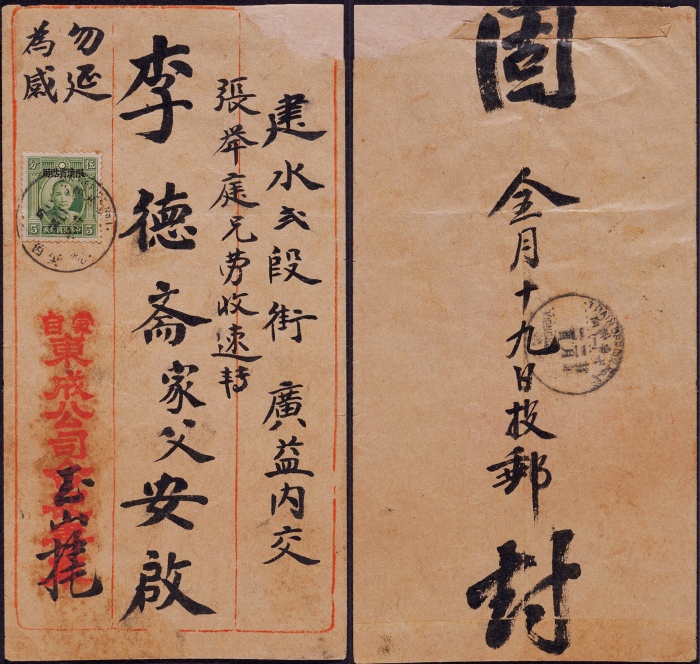 建水弍段街 廣益内交
張舉庭兄勞收速轉
李德斎家父安啟
勿延
為感
伍分
限滇省貼用
5 5
東成公司
玉山
固
仝月十九日投郵
封